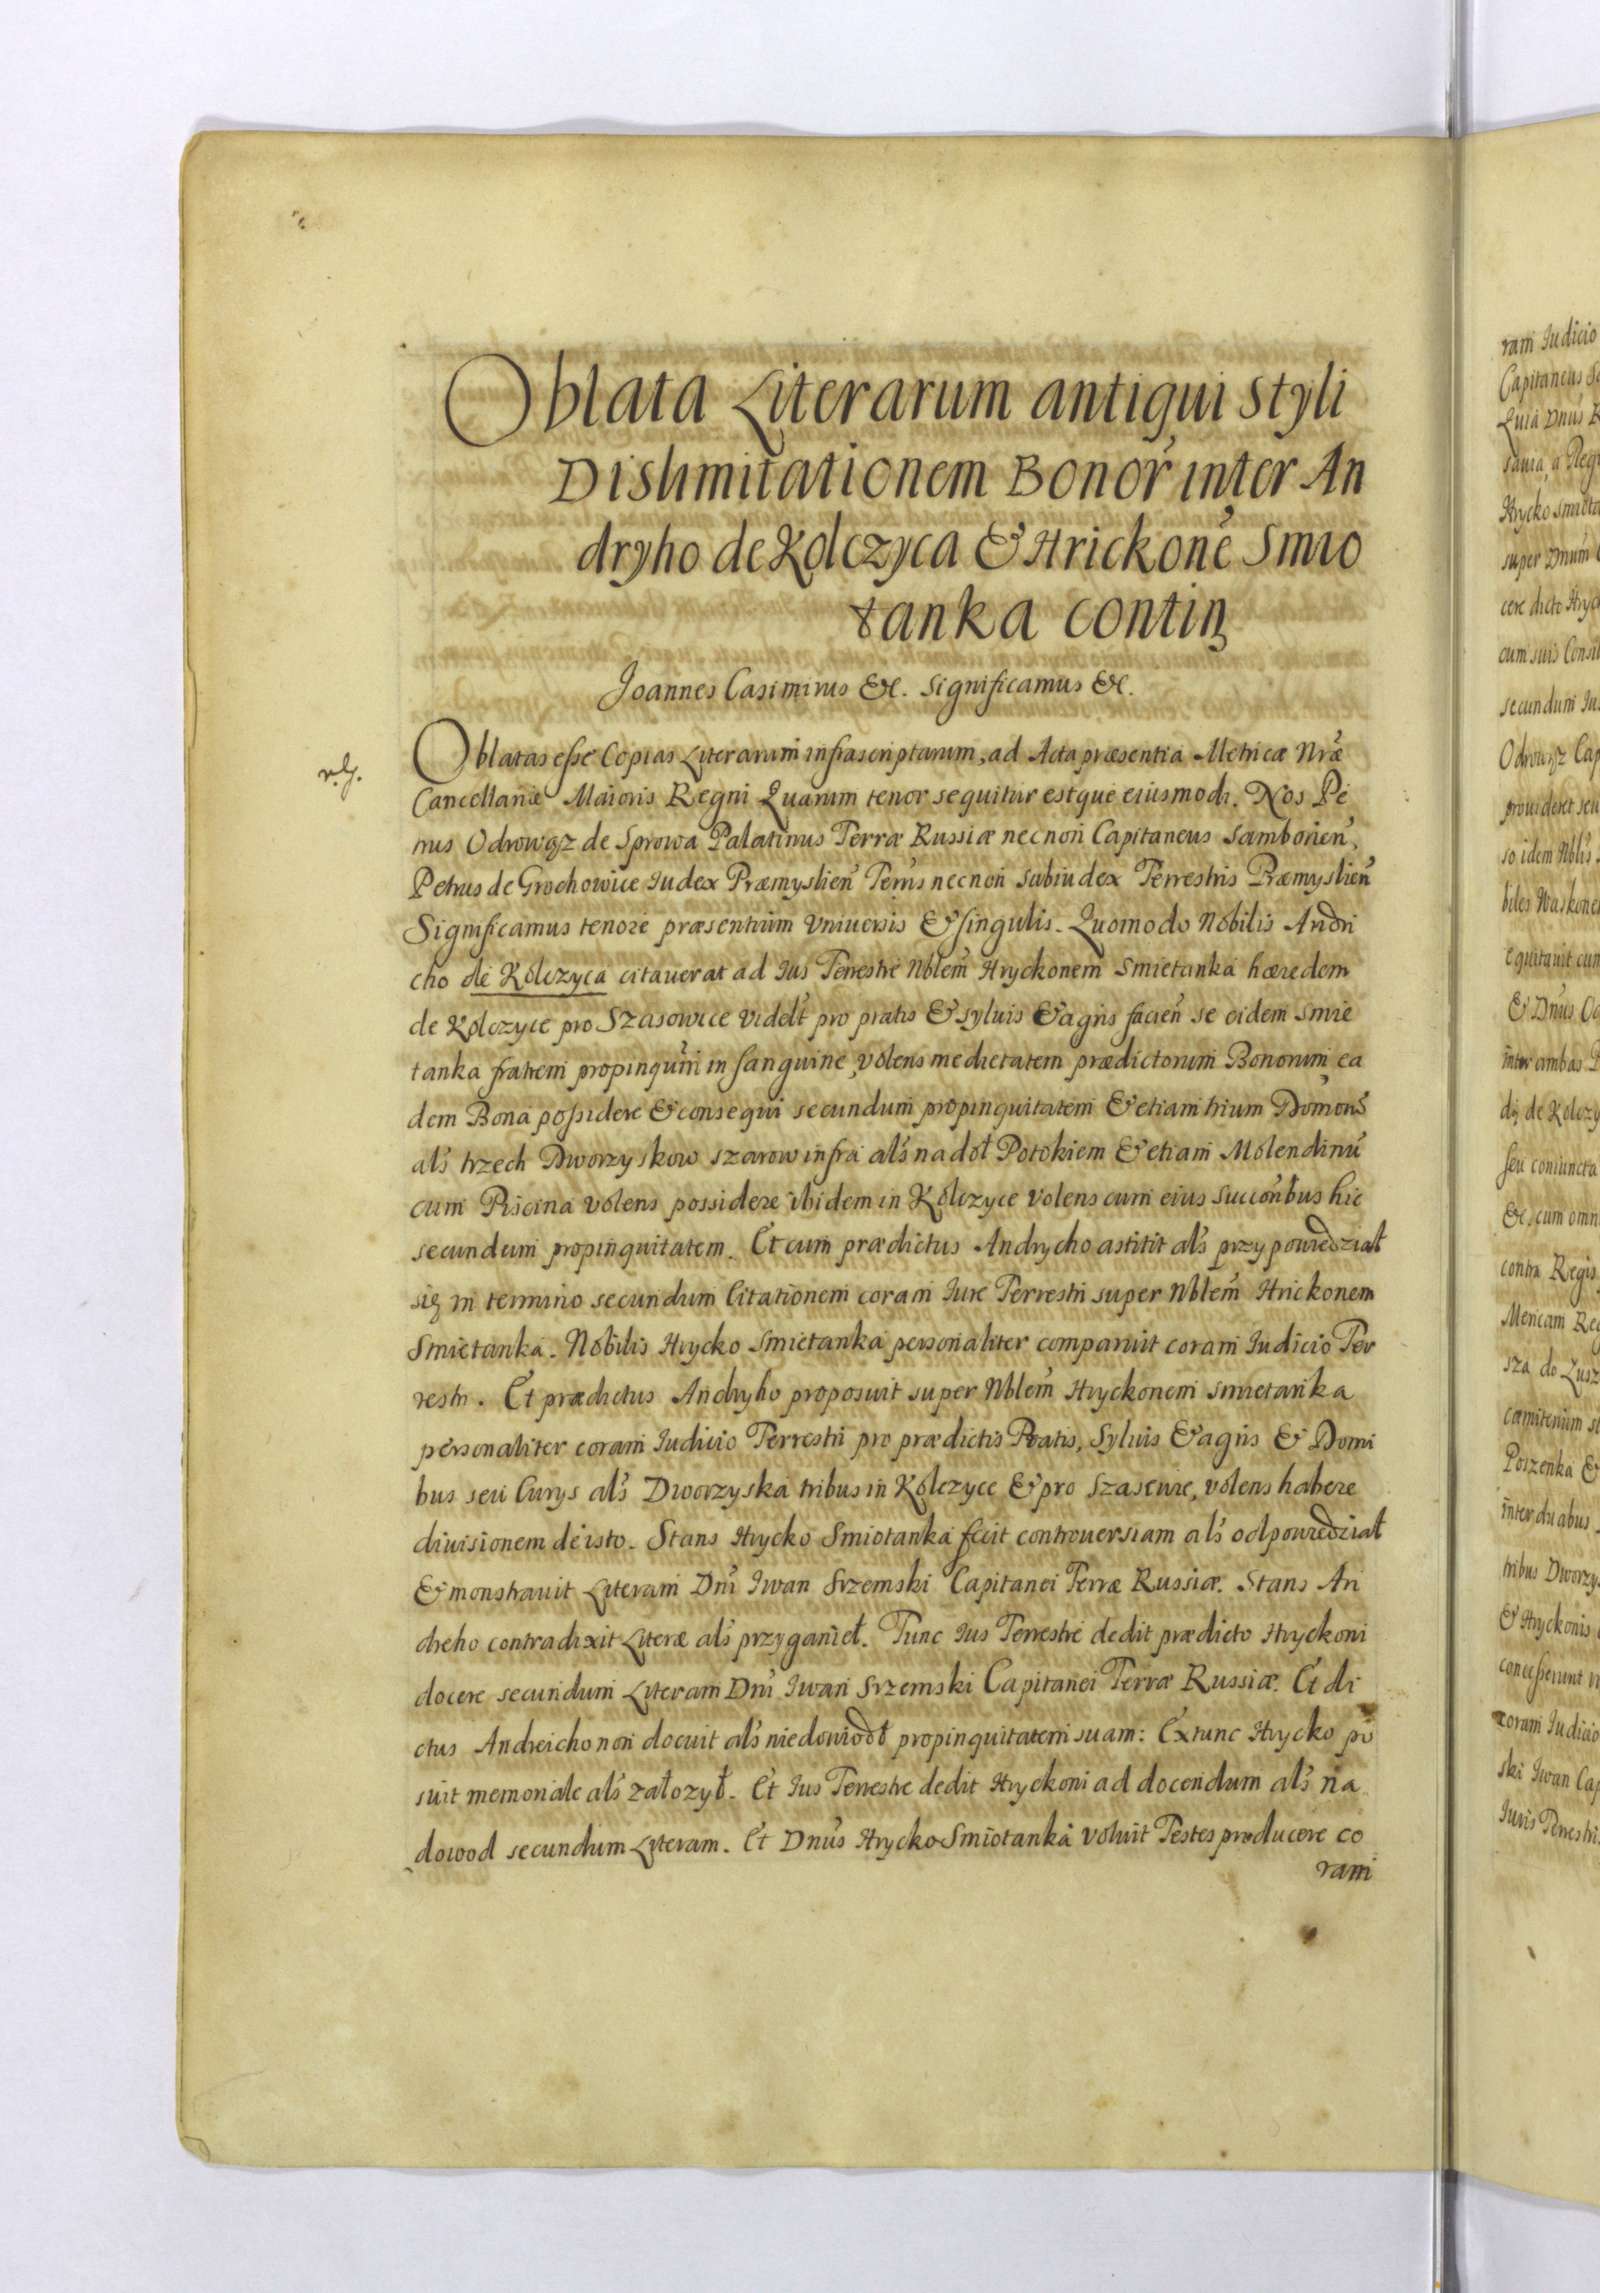 Oblata Literarum antiqui styli
Dislimitationem Bonor̃ inter An
dryho de Kolczyca & Hrickonẽ Smio
tanka contin̄
Joannes Casimirus &c. Significamus &c.
Oblatas esse Copias Literarum infrascriptarum, ad Acta præsentia Metricæ Nr̃æ
Cancellariæ Maioris Regni Quarum tenor sequitur estque eiusmodi. Nos Pe
trus Odrowąz de Sprowa Palatinus Terræ Russiæ necnon Capitaneus Samborien̄,
Petrus de Grochowice Iudex Præmyslien̄ Terr̃is necnon Subiudex Terrestris Præmyslien̄
Significamus tenore præsentium Vniuersis & singulis. Quomodo Nobilis Andri
cho de Kolczyca citauerat ad Ius Terrestre Nblem̃ Hryckonem Smietanka hæredem
de Kolczyce pro Szasowice Videlt̃ pro pratis & syluis & agris facien̄ se eidem Smie
tanka fratrem propinqũm in sanguine, volens medietatem prædictorum Bonorum, ea
dem Bona possidere & consequi secundum propinquitatem & etiam trium Domorũ
als̃ trzech Dworzyskow szarow infra als̃ na doł Potokiem & etiam Molendinũ
cum Piscina volens possidere ibidem in Kolczyce volens cum eius succonbus hic
secundum propinquitatem. Et cum prædictus Andrycho astitit als̃ przypowiedział
się in termino secundum Citationem coram Iure Terrestri super Nblem̃ Hrickonem
Smietanka. Nobilis Hrycko Smietanka personaliter comparuit coram Iudicio Ter
restri. Et prædictus Andryho proposuit super Nblem̃ Hryckonem Smietanka
personaliter coram Iudicio Terrestri pro prædictis Pratis, Syluis & agris & Domi
bus seu Curys als̃ Dworzyska tribus in Kolczyce & pro Szasewie, volens habere
diuisionem de isto. Stans Hrycko Smiotanka fecit controuersiam als̃ odpowiedział
& monstrauit Literam Dnĩ Iwan Srzemski Capitanei Terræ Russiæ. Stans An
dreho contradixit Literæ als̃ przyganieł. Tunc Ius Terrestre dedit prædicto Hryckoni
docere secundum Literam Dnĩ Iwan Srzemski Capitanei Terræ Russiæ. Et di
ctus Andreicho non docuit als̃ niedowiodł propinquitatem suam: Extunc Hrycko po
suit memoriale als̃ załozył. Et Ius Terrestre dedit Hryckoni ad docendum als̃ na
dowod secundum Literam. Et Dnũs Hrycko Smiotanka voluit Testes producere co
ram